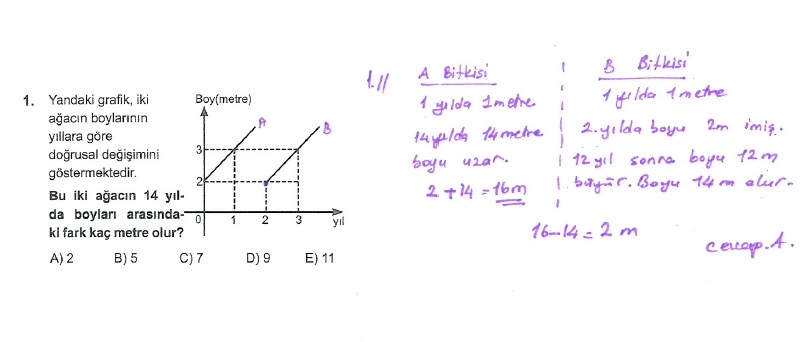 1. Yandaki grafik, iki
ağacın boylarının
yıllara göre
doğrusal değişimini
göstermektedir.
Bu iki ağacın 14 yıl-
da boyları arasında-
ki fark kaç metre olur?
Boy(metre)
A
B
3
2
0
1
2
3
yıl
A) 2 B) 5 C) 7 D) 9 E) 11
1.//
A Bitkisi
1 yılda 1 metre
14 yılda 14 metre
boyu uzar.
2 + 14 = 16m
B Bitkisi
1 yılda 1 metre
2. yılda boyu 2m imiş.
12 yıl sonra boyu 12m
büyür. Boyu 14 m olur.
16-14 = 2 m
cevap. A.